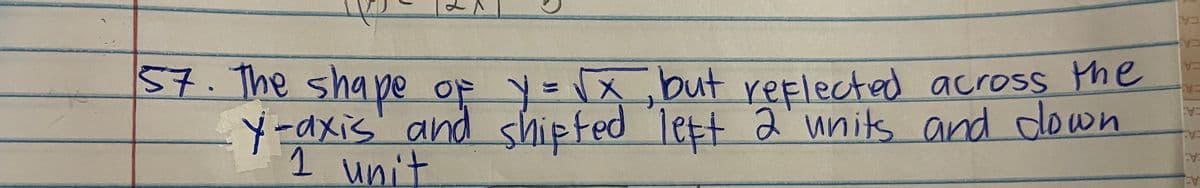 57. The shape of y = √x, but reflected across the
y-axis and shifted left 2 units and down
1 unit